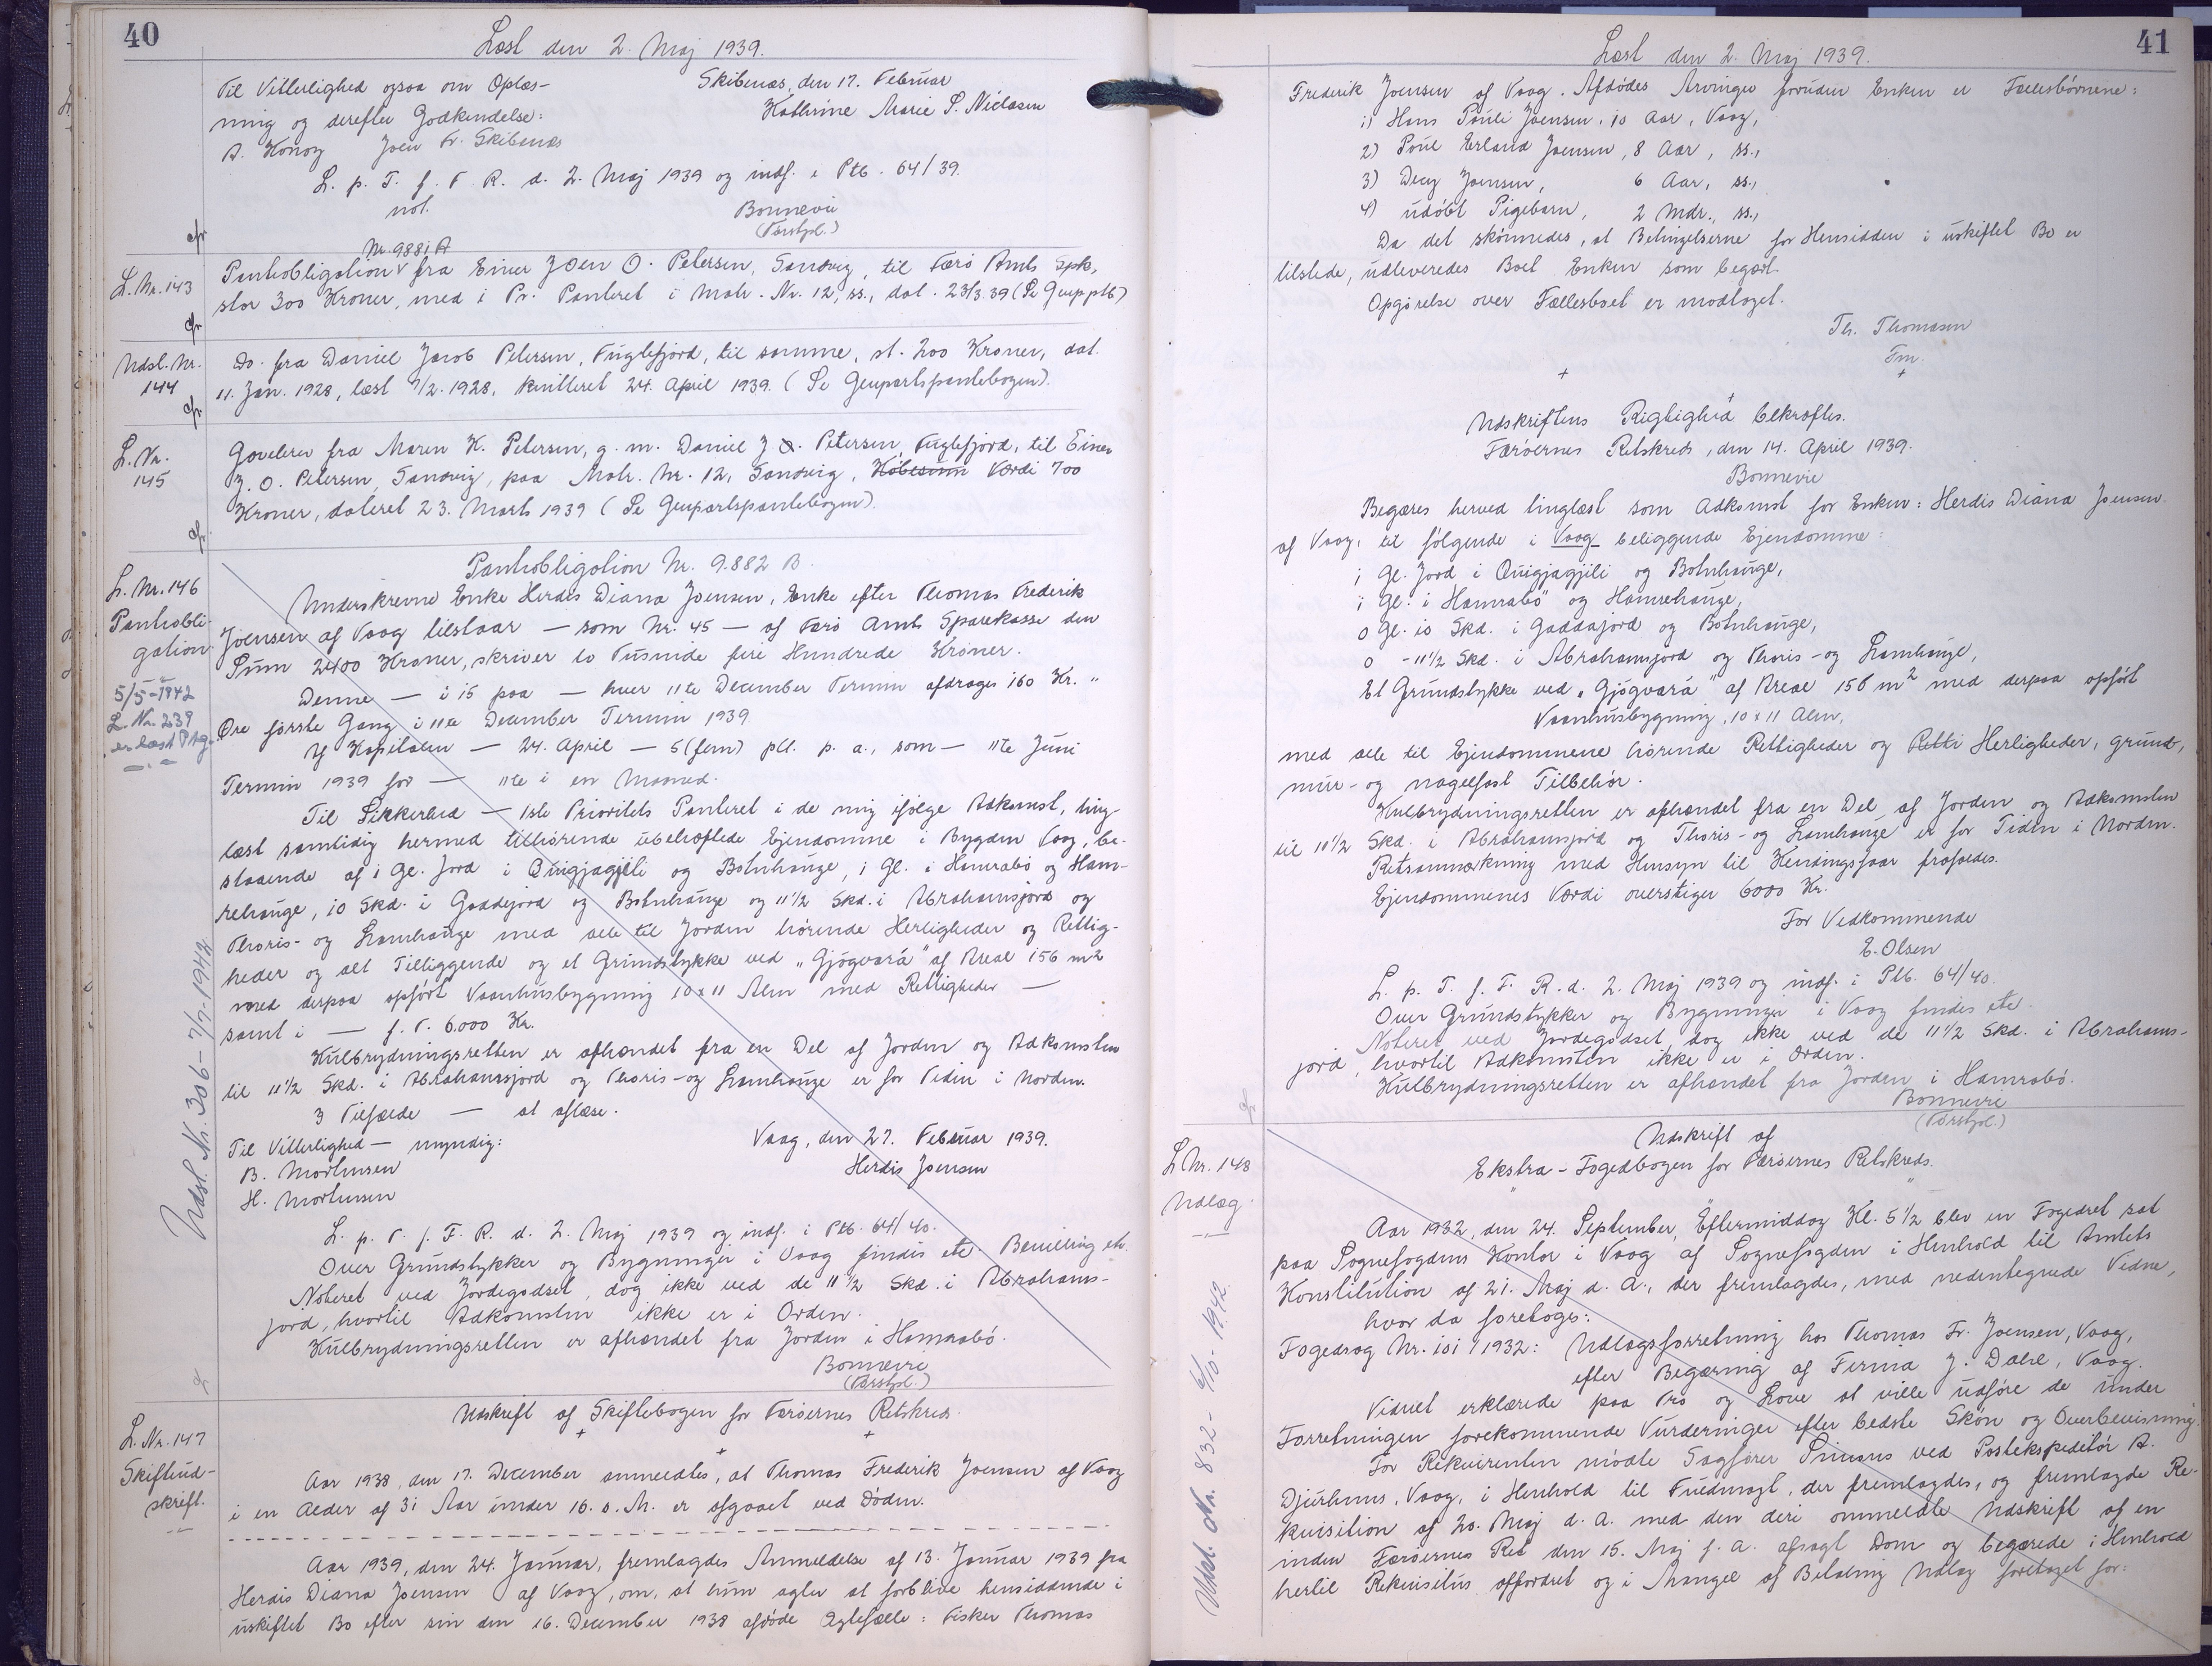 40
Læst den 2. Maj 1939.
Til Vitterlighed ogsaa om Oplæs-
ning og derefter Godkendelse:
A. Konoy Joen Fr. Skibenæs
Skibenæs, den 17. Februar
Kathrine Marie S. Niclasen
L. p. T. f. F. R. d. 2. Maj 1939 og indf. i Ptb. 64/39.
not.
Bonnevie
(Førstfol.)
cfr
L. Nr. 143
Nr. 9881 A
Pantobligation fra Einer Joen O. Petersen, Sandvig, til Færø Amts Spk,
stor 300 Kroner, med 1 Pr. Panteret i Matr. Nr. 12, ss., dat. 23/3 39 (Se Genpptb)
cfr
Udsl. Nr.
144
Do. fra Daniel Jacob Petersen, Fuglefjord, til samme, st. 200 Kroner, dat.
11. Jan. 1928, læst 7/2. 1928, kvitteret 24. April 1939. (Se Genpartspantebogen).
cfr
L. Nr.
145
Gavebrev fra Maren K. Petersen, g. m. Daniel J. O. Petersen, Fuglefjord, til Einer
J. O. Petersen, Sandvig, paa Matr. Nr. 12, Sandvig, Købesum Værdi 700
Kroner, dateret 23. Marts 1939 (Se Genpartspantebogen).
cfr.
L. Nr. 146
Pantobli-
gation.
5/5-1942
L. Nr. 239
er læst Ptg.
Udsl. Nr. 306 - 7/7-1942
Pantobligation Nr. 9.882 B.
Underskrevne Enke Herdis Diana Joensen, Enke efter Thomas Frederik
Joensen af Vaag tilstaar — som Nr. 45 — af Færø Amts Sparekasse den
Sum 2400 Kroner, skriver to Tusinde fire Hundrede Kroner.
Denne — i 15 paa — hver 11te December Termin afdrages 160 Kr. "
Øre første Gang i 11te December Termin 1939.
Af Kapitalen — 24. April — 5 (fem) pCt. p. a., som — 11te Juni
Termin 1939 for — 11te i en Maaned.
Til Sikkerhed — 1ste Prioritets Panteret i de mig ifølge Adkomst, ting-
læst samtidig hermed tilhørende ubehæftede Ejendomme i Bygden Vaag, be-
staaende af 1 Gl. Jord i Quigjagjili og Botnhauge, 1 Gl. i Hamrabø og Ham-
rehauge, 10 Skd. i Gaddejord og Botnhauge og 11 1/2 Skd. i Abrahamsjord og
Thoris- og Lamhauge med alle til Jorden hørende Herligheder og Rettig-
heder og alt Tilliggende og et Grundstykke ved „Gjógvará" af Areal 156 m2
med derpaa opført Vaanhusbygning 10 x 11 Alen med Rettigheder —
samt i — f. T. 6.000 Kr.
Kulbrydningsretten er afhændet fra en Del af Jorden og Adkomsten
til 11 1/2 Skd. i Abrahamsjord og Thoris- og Lamhauge er for Tiden i Norden.
3 Tilfælde — at aflæse.
Til Vitterlighed — myndig:
B. Mortensen
H. Mortensen
Vaag, den 27. Februar 1939.
Herdis Joensen
L. p. T. f. F. R. d. 2. Maj 1939 og indf. i Ptb. 64/40.
Over Grundstykker og Bygninger i Vaag findes etc. Bevilling etc.
Noteret ved Jordegodset, dog ikke ved de 11 1/2 Skd. i Abrahams-
jord, hvortil Adkomsten ikke er i Orden.
Kulbrydningsretten er afhændet fra Jorden i Hamrabø.
Bonnevie
(Førstfol.)
L. Nr. 147
Skifteud-
skrift.
Udskrift af Skiftebogen for Færøernes Retskreds.
Aar 1938, den 17. December anmeldtes, at Thomas Frederik Joensen af Vaag
i en Alder af 31 Aar under 16. s. M. er afgaaet ved Døden.
Aar 1939, den 24. Januar, fremlagdes Anmeldelse af 13. Januar 1939 fra
Herdis Diana Joensen af Vaag, om, at hun agter at forblive hensiddende i
uskiftet Bo efter sin den 16. December 1938 afdøde Ægtefælle: Fisker Thomas
41
Læst den 2. Maj 1939.
Frederik Joensen af Vaag. Afdødes Arvinger foruden Enken er Fællesbørnene:
1) Hans Pauli Joensen, 10 Aar, Vaag,
2) Poul Erland Joensen, 8 Aar, ss.,
3) Joensen, 6 Aar, ss.,
4) udøbt Pigebarn, 2 Mdr., ss.,
Da det skønnedes, at Betingelserne for Hensidden i uskiftet Bo er
tilstede, udleveredes Boet Enken som begært.
Opgørelse over Fællesboet er modtaget.
Th. Thomasen
Fm.
Udskriftens Rigtighed bekræftes.
Færøernes Retskreds, den 14. April 1939.
Bonnevie
Begæres herved tinglæst som Adkomst for Enken: Herdis Diana Joensen
af Vaag, til følgende i Vaag beliggende Ejendomme:
1 Gl. Jord i Quigjagjili og Botnhauge,
1 Gl. i Hamrabø" og Hamrehauge,
0 Gl. 10 Skd. i Gaddajord og Botnhauge,
0 - 11 1/2 Skd. i Abrahamsjord og Thoris- og Lamhauge,
Et Grundstykke ved „Gjógvará" af Areal 156 m2 med derpaa opført
Vaanhusbygning, 10 x 11 Alen,
med alle til Ejendommene hørende Rettigheder og Retti Herligheder, grund,
mur- og nagelfast Tilbehør.
Kulbrydningsretten er afhændet fra en Del af Jorden og Adkomsten
til 11 1/2 Skd. i Abrahamsjord og Thoris- og Lamhauge er for Tiden i Norden.
Retsanmærkning med Hensyn til Kendingsfaar frafaldes.
Ejendommenes Værdi overstiger 6000 Kr.
For Vedkommende
E. Olsen
L. p. T. f. F. R. d. 2. Maj 1939 og indf. i Ptb. 64/40.
Over Grundstykker og Bygninger i Vaag findes etc.
Noteret ved Jordegodset, dog ikke ved de 11 1/2 Skd. i Abrahams-
jord, hvortil Adkomsten ikke er i Orden.
Kulbrydningsretten er afhændet fra Jorden i Hamrabø.
Bonnevie
(Førstfol.)
L. Nr. 148
Udlæg.
Udsl. Nr. 832 - 6/10-1942
Udskrift af
Ekstra-Fogedbogen for Færøernes Retskreds.
Aar 1932, den 24. September, Eftermiddag Kl. 5 1/2 blev en Fogedret sat
paa Sognefogdens Kontor i Vaag af Sognefogden i Henhold til Amtets
Konstitution af 21. Maj d. A., der fremlagdes, med nedentegnede Vidne,
hvor da foretoges:
Fogedsag Nr. 101/1932: Udlægsforretning hos Thomas Fr. Joensen, Vaag,
efter Begæring af Firma J. Dahl, Vaag.
Vidnet erklærede paa Tro og Love at ville udføre de under
Forretningen forekommende Vurderinger efter bedste Skøn og Overbevisning.
For Rekvirenten mødte Sagfører ved Postekspeditør A.
Djurhuus, Vaag, i Henhold til Fuldmagt, der fremlagdes, og fremlagde Re-
kvisition af 20. Maj d. A. med den deri ommeldte Udskrift af en
inden Færøernes Ret den 15. Maj f. A. afsagt Dom og begærede i Henhold
hertil Rekvisitus opfordret og i Mangel af Betaling Udlæg foretaget for: